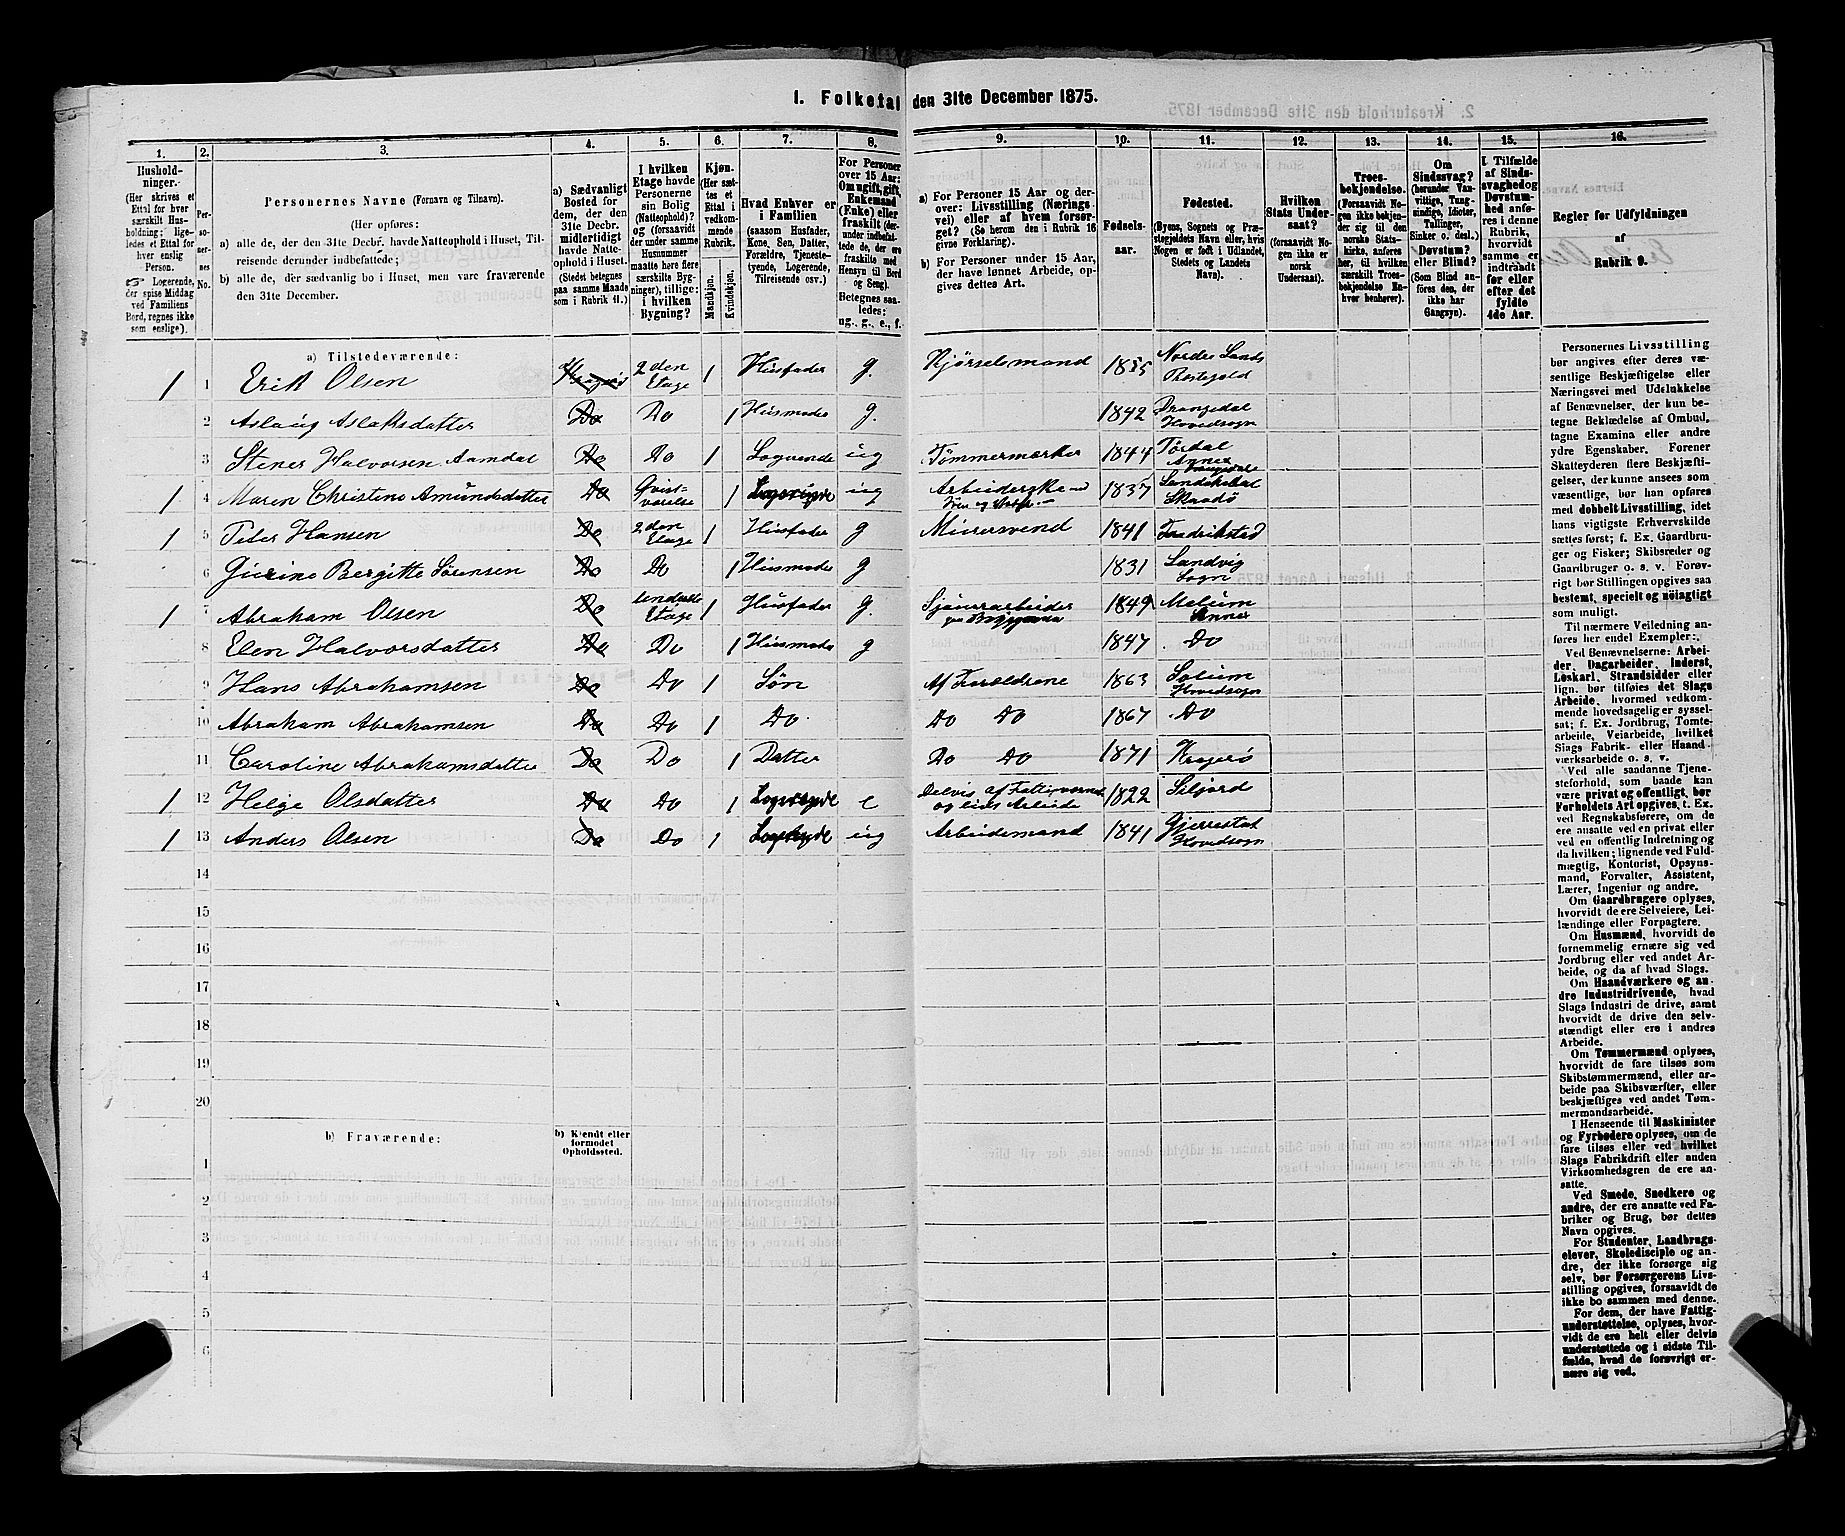 1. Folketal den 31te December 1875.
1. 2. 3. 4. 5. 6. 7. 8. 9. 10. 11. 12. 13. 14. 15. 16.
Hushold-
ninger.
(Her skrives et
Ettal for hver
særskilt Hus-
holdning; lige-
ledes et Ettal for
hver enslig
Person.
Logerende,
der spise Middag
ved Familiens
Bord, regnes ikke
som enslige).
Per-
so-
ner-
nes
No.
Personernes Navne (Fornavn og Tilnavn).
(Her opføres:
a) alle de, der den 31te Decbr. havde Natteophold i Huset, Til-
reisende derunder indbefattede;
b) alle de, der sædvanlig bo i Huset, men vare fraværende
den 31te December.
a) Sædvanligt
Bosted for
dem, der den
31te Decbr.
midlertidigt
havde Natte-
ophold i Huset.
(Stedet betegnes
paa samme Maade
som i Rubrik 11.)
I hvilken
Etage havde
Personerne
sin Bolig
(Natteophold)?
og (forsaavidt
der under samme
Husnummer
maatte høre flere
særskilte Byg-
ninger), tillige:
i hvilken
Bygning?
Kjøn.
(Her sæt-
tes et
Ettal i
vedkom-
mende
Rubrik.
Mandkjøn.
Kvindekjøn.
Hvad Enhver er
i Familien
(saasom Husfader,
Kone, Søn, Datter,
Forældre, Tjeneste-
tyende, Logerende,
Tilreisende osv.)
For Personer
over 15 Aar:
Om ugift, gift,
Enkemand
(Enke) eller
fraskilt (der-
under indbefat-
tede de, der ere
fraskilte med
Hensyn til Bord
og Seng).
Betegnes saa-
ledes:
ug., g., e., f.
a) For Personer 15 Aar og der-
over: Livsstilling (Nærings-
vei) eller af hvem forsør-
get? (Se herom den i Rubrik 16
givne Forklaring).
b) For Personer under 15 Aar,
der have lønnet Arbeide, op-
gives dettes Art.
Fødsels-
aar.
Fødested.
(Byens, Sognets og Præ-
stegjeldets Navn eller, hvis
Nogen er født i Udlandet,
Stedets og Landets
Navn).
Hvilken
Stats Under-
saat?
(forsaavidt No-
gen ikke er
norsk
Undersaat).
Troes-
bekjendelse.
(Forsaavidt No-
gen ikke bekjen-
der sig til den
norske Stats-
kirke, anføres
her, til hvilken
særskilt Troes-
bekjendelse En-
hver henhører).
Om
Sindssvag?
(herunder Van-
vittige, Tung-
sindige, Idioter,
Tullinger,
Sinker o. desl.)
Døvstum?
eller Blind?
(Som Blind an-
føres den, der
ikke har
Gangsyn).
I Tilfælde
af Sinds-
svaghed og
Døvstum-
hed anfø-
res i denne
Rubrik,
hvorvidt
samme er
indtraadt
før eller
efter det
fyldte
4de Aar.
Regler for Udfyldningen
af
Rubrik 9.
a) Tilstedeværende:
1 1 Erik Olsen 2den Etage 1 Husfader g. Kjørselsmand 1835 Nordre Lands Præstegjeld
2 Aslaug Aslaksdatter Do Do 1 Husmoder g. 1842 Drangedal Hovedsogn
3 Stener Halvorsen Aamdal Do Do 1 Logerende ug Tømmermærker 1844 Tørdal Annex Drangedal
1 4 Maren Christine Amundsdatter Do Qvist- værelse 1 Logerende ug 1837 Skaadø
1 5 Peder Hansen Do 2den Etage 1 Husfader g Murersvend 1841 Fredrikstad
6 Gurine Bergitte Sørensen Do Do 1 Husmoder g 1831 Landvig Sogn
1 7 Abraham Olsen Do underste Etage 1 Husfader g. Sjouerarbeider paa Bryggerne 1849 Melum Annex
8 Elen Halvorsdatter Do Do 1 Husmoder g 1847 Do
9 Hans Abrahamsen Do Do 1 Søn Af Forældrene 1863 Solum Hovedsogn
10 Abraham Abrahamsen Do Do 1 Do Do Do 1867 Do
11 Caroline Abrahamsdatter Do Do 1 Datter Do Do 1871 Kragerø
1 12 Helge Olsdatter Do Do 1 Logerende e Delvis af Fattigvæsnet og lidt Arbeide 1822 Siljord
1 13 Anders Olsen Do Do 1 Logerende ug Arbeidsmand 1841 Gjerrestad Hovedsogn
14
15
16
17
18
19
20
b) Fraværende:
b) Kjendt eller
formodet
Opholdssted.
1
2
3
4
5
6
Personernes Livsstilling
bør angives efter deres væ-
sentlige Beskjæftigelse eller
Næringsvei med Udelukkelse
af Benævnelser, der kun be-
tegne Beklædelse af Ombud,
tagne Examina eller andre
ydre Egenskaber. Forener
Skatteyderen flere Beskjæfti-
gelser, der kunne ansees som
væsentlige, bør han opføres
med dobbelt Livsstilling, idet
hans vigtigste Erhvervskilde
sættes først; f. Ex. Gaardbru-
ger og Fisker; Skibsreder og
Gaardbruger o. s. v. Forøv-
rigt bør Stillingen opgives saa
bestemt, specielt og nøiagtigt
som muligt.
Til nærmere Veiledning an-
føres her endel Exempler:
Ved Benævnelserne: Arbei-
der, Dagarbeider, Inderst,
Løskarl, Strandsidder eller
lign. bør tilføies det Slags
Arbeide, hvormed vedkom-
mende hovedsagelig er syssel-
sat; f. Ex. Jordbrug, Tomte-
arbeide, Veiarbeide, hvilket
Slags Fabrik- eller Haand-
værksarbeide o. s. v.
Ved alle saadanne Tjene-
steforhold, som baade kan
være privat og offentligt, bør
Forholdets Art opgives, t. Ex.
ved Regnskabsførere, om de
ere ansatte ved en privat eller
ved en offentlig Indretning og
da hvilken; lignende ved Fuld-
mægtig, Kontorist, Opsyns-
mand, Forvalter, Assistent,
Lærer, Ingeniør og andre.
Om Gaardbrugere oplyses,
hvorvidt de ere Selveiere, Lei-
lændinge eller Forpagtere.
Om Husmænd, hvorvidt de
fornemmelig ernære sig ved
Jordbrug eller ved andet Ar-
beide, og da af hvad Slags.
Om Haandværkere og an-
dre Industridrivende, hvad
Slags Industri de drive, samt
hvorvidt de drive den selv-
stændigt eller ere i andres
Arbeide.
Om Tømmermænd oplyses,
hvorvidt de fare tilsøs som
Skibstømmermænd, eller ar-
beide paa Skibsværfter, eller
beskjæftiges ved andet Tøm-
mermandsarbeide.
I Henseende til Maskinister
og Fyrbødere oplyses, om de
fare tilsøs eller ved hvilket
Slags Fabrikdrift eller anden
Virksomhedsgren de ere an-
satte.
Ved Smede, Snedkere og
andre, der ere ansatte ved Fa-
briker og Brug, bør dettes
Navn opgives.
For Studenter, Landbrugs-
elever, Skoledisciple og an-
dre, der ikke forsørge sig
selv, bør Forsørgerens Livs-
stilling opgives, forsaavidt de
ikke bo sammen med denne.
For dem, der have Fattig-
understøttelse, oplyses, hvor-
vidt de ere helt eller delvis
understøttede og i sidste Til-
fælde, hvad de forøvrigt er-
nære sig ved.